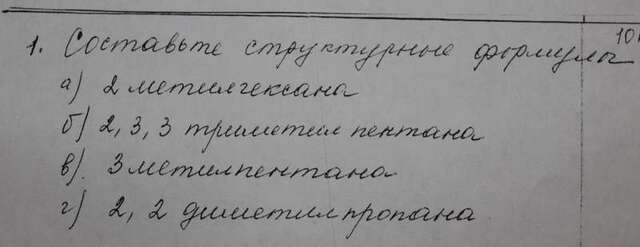 10
1. Составьте структурные формулы
а) 2 метилгексана
б) 2, 3, 3 триметил пентана
в) 3 метилпентана
г) 2, 2 диметилпропана